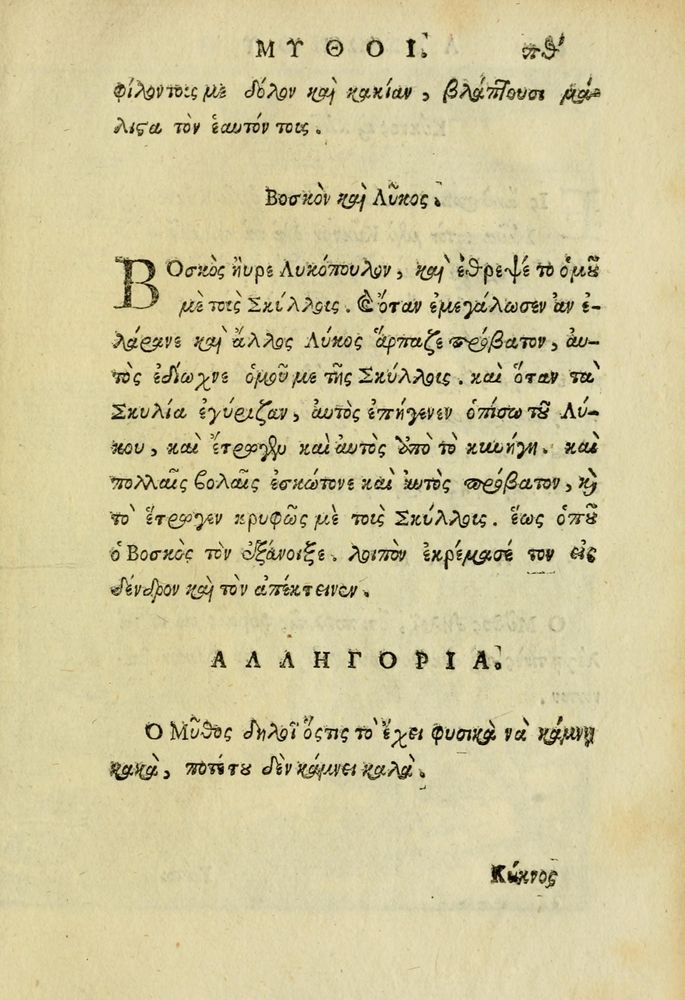 ΜΥΘΟΙ. πθʹ
φίλοντοις με δόλον καὶ κακίαν, βλάπτουσι μά-
λιςα τὸν ἑαυτόν τοις.
Βοσκὸν καὶ Λῦκος.
ΒΟσκὸς ἤυρε Λυκόπουλον, καὶ ἔθρεψέ το ὁμοῦ
μὲ τοὶς Σκίλλοις. Ὅταν ἐμεγάλωσεν ἀν ἐ-
λάρανε καὶ ἄλλος Λύκος ἅρπαζε πρόβατον, ἀυ-
τὸς ἐδίωχνε ὁμοῦ με τῆς Σκύλλοις. καὶ ὅταν τὰ
Σκυλία ἐγύριζαν, ἀυτὸς ἐπήγενεν ὀπίσω τοῦ Λύ-
κου, καὶ ἔτρωγεν καὶ αὐτὸς ὑπὸ τὸ κυνήγη. καὶ
πολλαῖς βολαῖς ἐσκώτονε καὶ ἀυτὸς πρόβατον, καὶ
τὸ ἔτρωγεν κρυφῶς μὲ τοὶς Σκύλλοις. ἕως ὁποῦ
ὁ Βοσκὸς τὸν ἐξάνοιξε. λοιπὸν ἐκρέμασέ τον εἰς
δένδρον καὶ τὸν ἀπέκτεινεν.
ΑΛΛΗΓΟΡΙΑ.
Ὁ Μῦθος δηλοῖ ὅςτις τὸ ἔχει φυσικὰ νὰ κάμνῃ
κακὰ, ποτέτου δὲν κάμνει καλὰ.
Κύκνος